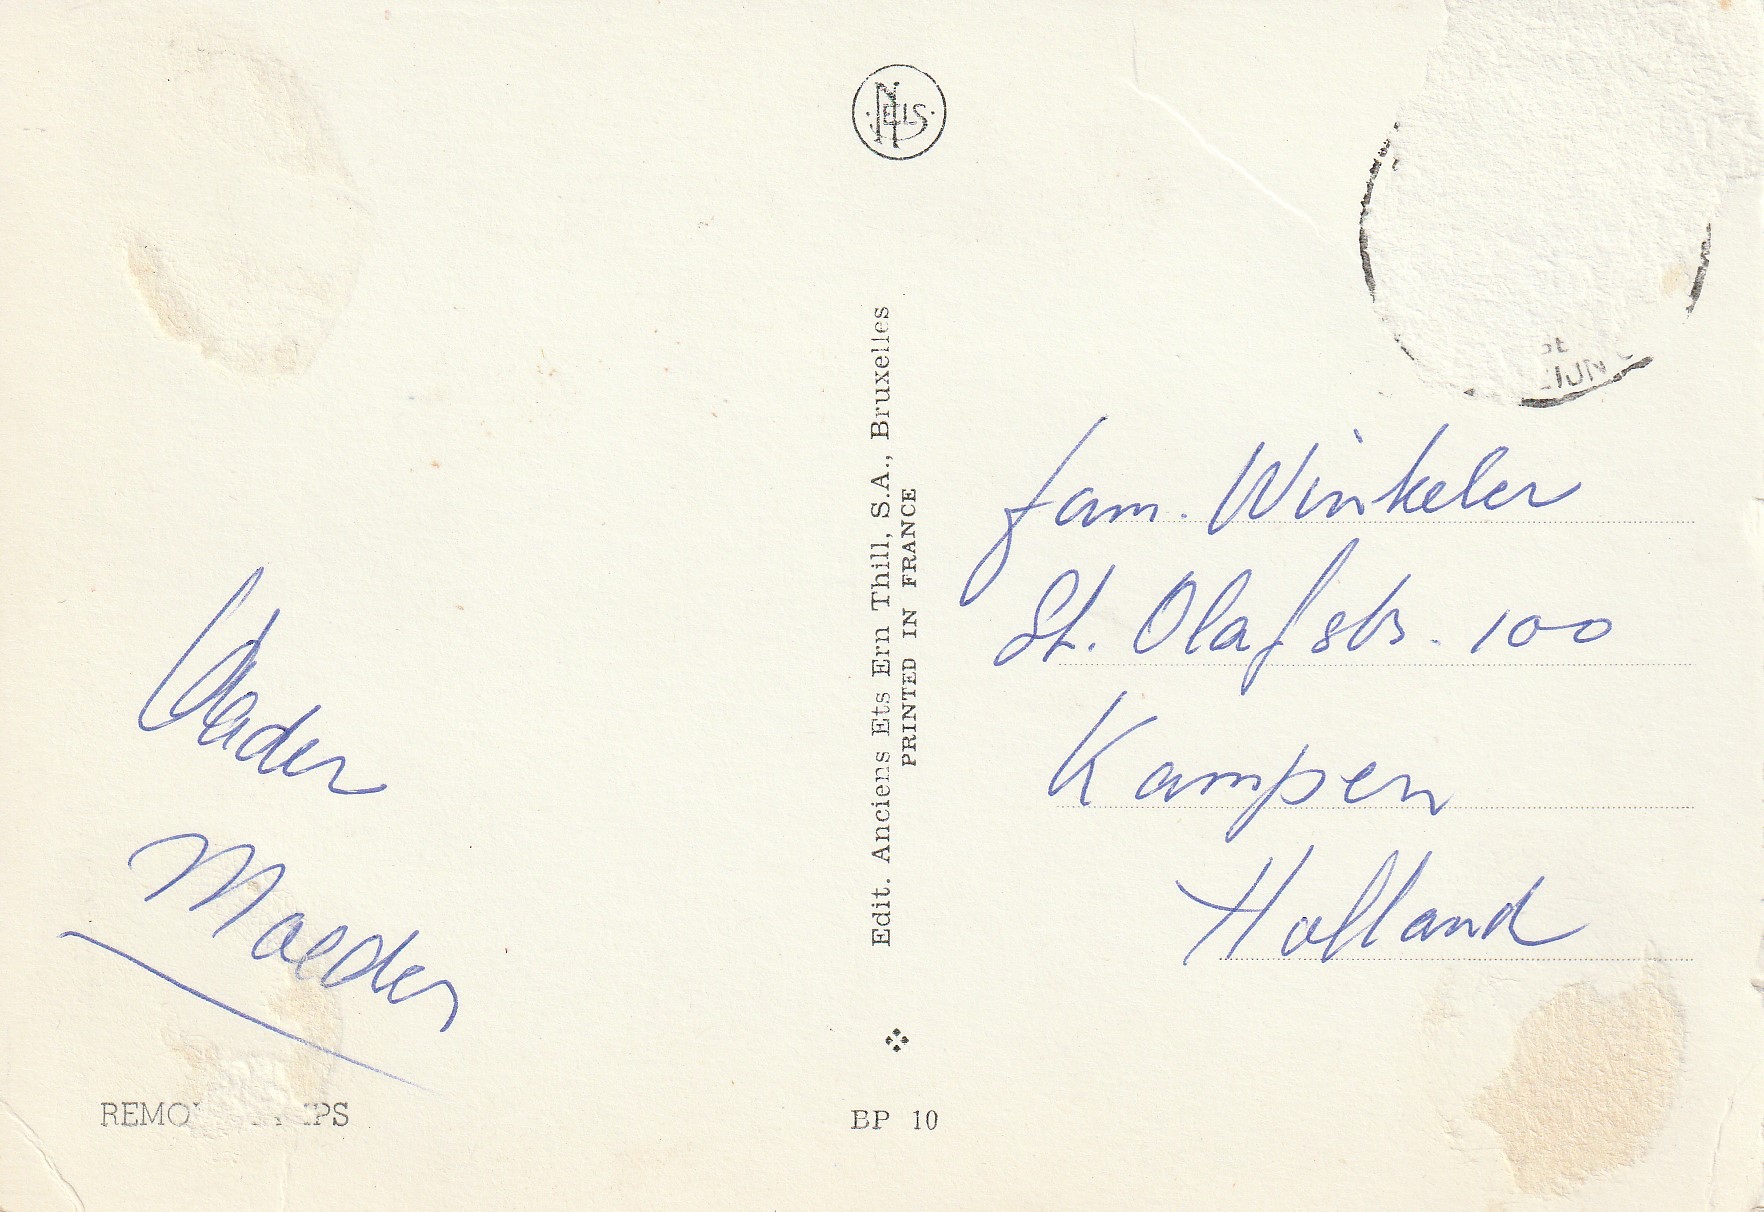 NELS
Vader
Moeder
fam. Winkeler
St. Olafstr. 100
Kampen
Holland
Edit. Anciens Ets Ern Thill, S.A., Bruxelles
PRINTED IN FRANCE
BP 10